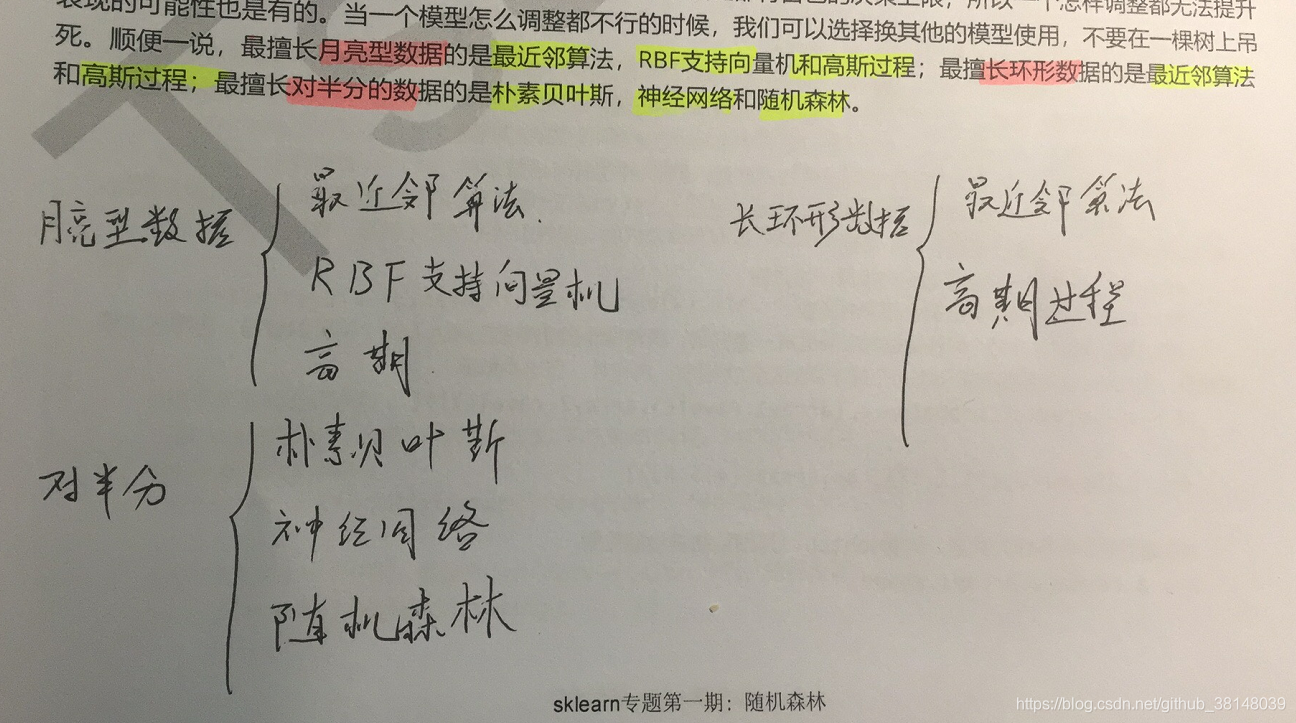 决策上限，所以一个怎样调整都无法提升
表现的可能性也是有的。当一个模型怎么调整都不行的时候，我们可以选择换其他的模型使用，不要在一棵树上吊
死。顺便一说，最擅长月亮型数据的是最近邻算法，RBF支持向量机和高斯过程；最擅长环形数据的是最近邻算法
和高斯过程；最擅长对半分的数据的是朴素贝叶斯，神经网络和随机森林。
月亮型数据
最近邻算法.
RBF支持向量机
高期
长环形数据
最近邻算法
高期过程
对半分
朴素贝叶斯
神经网络
随机森林
sklearn专题第一期：随机森林
https://blog.csdn.net/github_38148039